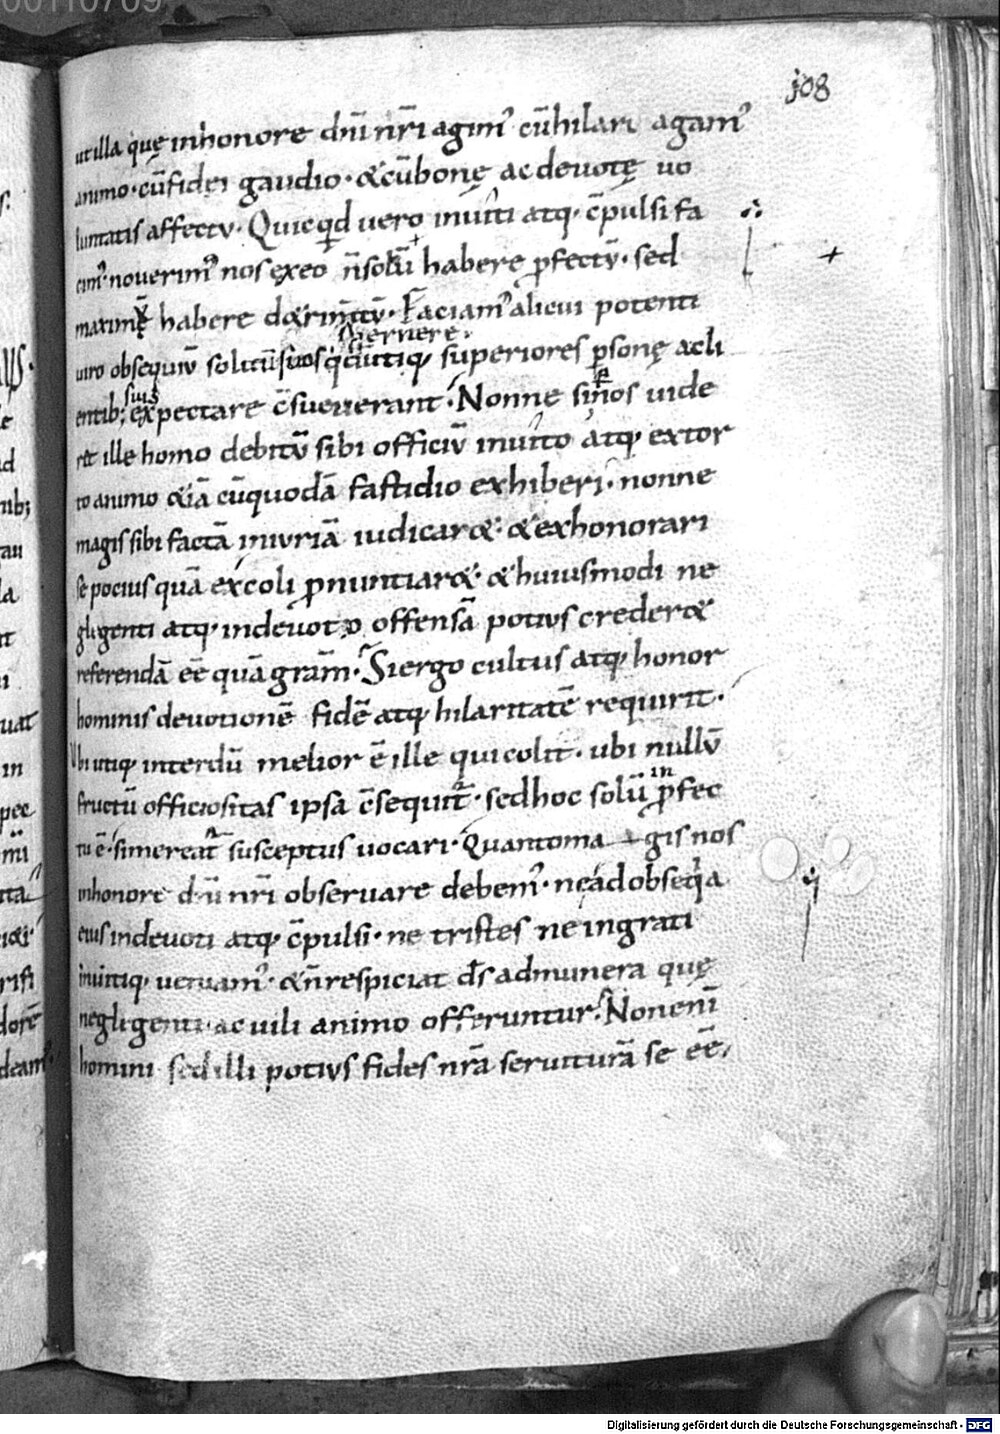 108
ut illa quę in honore dn̄i nr̄i agim᾿ cū hilari agam᾿
animo · cū fidei gaudio · & cū bonę ac devotę uo
luntatis affectu · Quicqd vero inviti atq; c̄pulsi fa
cim᾿ noverim᾿ nos ex eo n̄ solū habere ꝓfectū · sed
maximē habere d&rim̄tū · Faciam᾿ alicui potenti
uiro obsequiū solitū
superiores psonę a cli
entib; suis expectare c̄sueverant · Nonne si nos vide
r& ille homo debitū sibi officiū invito atq; extor
to animo & iā cū quodā fastidio exhiberi · nonne
magis sibi factā iniuriā iudicar& · & exhonorari
se pocius quā excoli ꝓnuntiar& · & huiusmodi ne
gligenti atq; indevoto offensā potius creder&
referendā eē quā gr̄am · Si ergo cultus atq; honor
hominis devotionē fidē atq; hilaritatē requirit ·
Ubi utiq; interdū melior ē ille qui colit · ubi nullū
fructū officiositas ipsa c̄sequit᾿ · sed hoc solū in ꝓfec
tu ē · si mereat᾿ susceptus vocari · Quanto ma gis nos
in honore dn̄i nr̄i observare debem᾿ · ne ad obseqia
eius indevoti atq; c̄pulsi · ne tristes ne ingrati
invitiq; veniam᾿ · & n̄ respiciat ds̄ ad munera quę
negligenti ac vili animo offeruntur · Non enī
homini sed illi potius fides nr̄a serviturā se eē
Digitalisierung gefördert durch die Deutsche Forschungsgemeinschaft - DFG